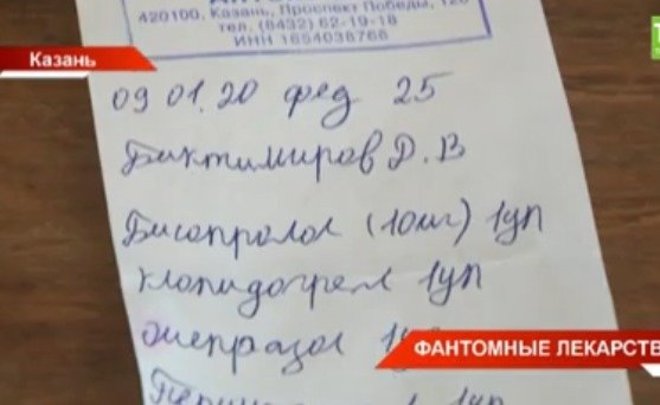 420100, Казань, Проспект Победы,
тел. (8432) 62-19-18
ИНН 1654038766
Казань
09 01.20 фед 25
Биктимиров Д.В
Бисопролол (10мг) 1уп
клопидогрел 1уп
Омепразол
ФАНТОМНЫЕ ЛЕКАРСТВ
1уп